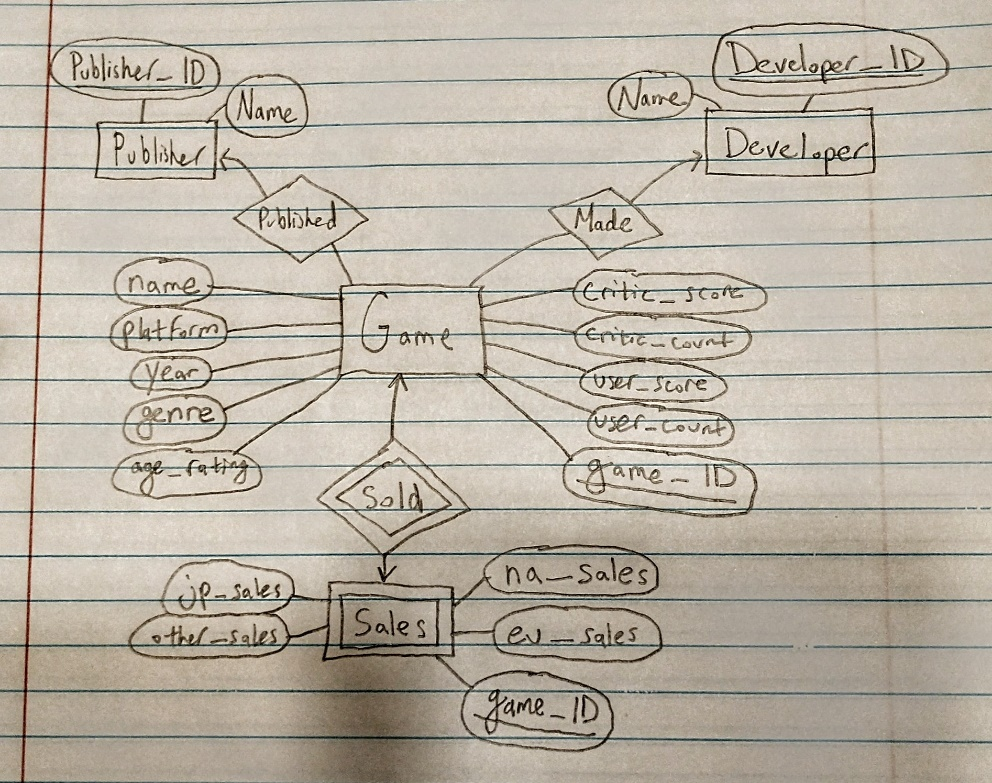 Publisher_ID
Name
Publisher
Published
Developer_ID
Name
Developer
Made
name
platform
year
genre
age_rating
Game
critic_score
critic_count
user_score
user_count
game_ID
Sold
jp_sales
other_sales
Sales
na_sales
eu_sales
game_ID